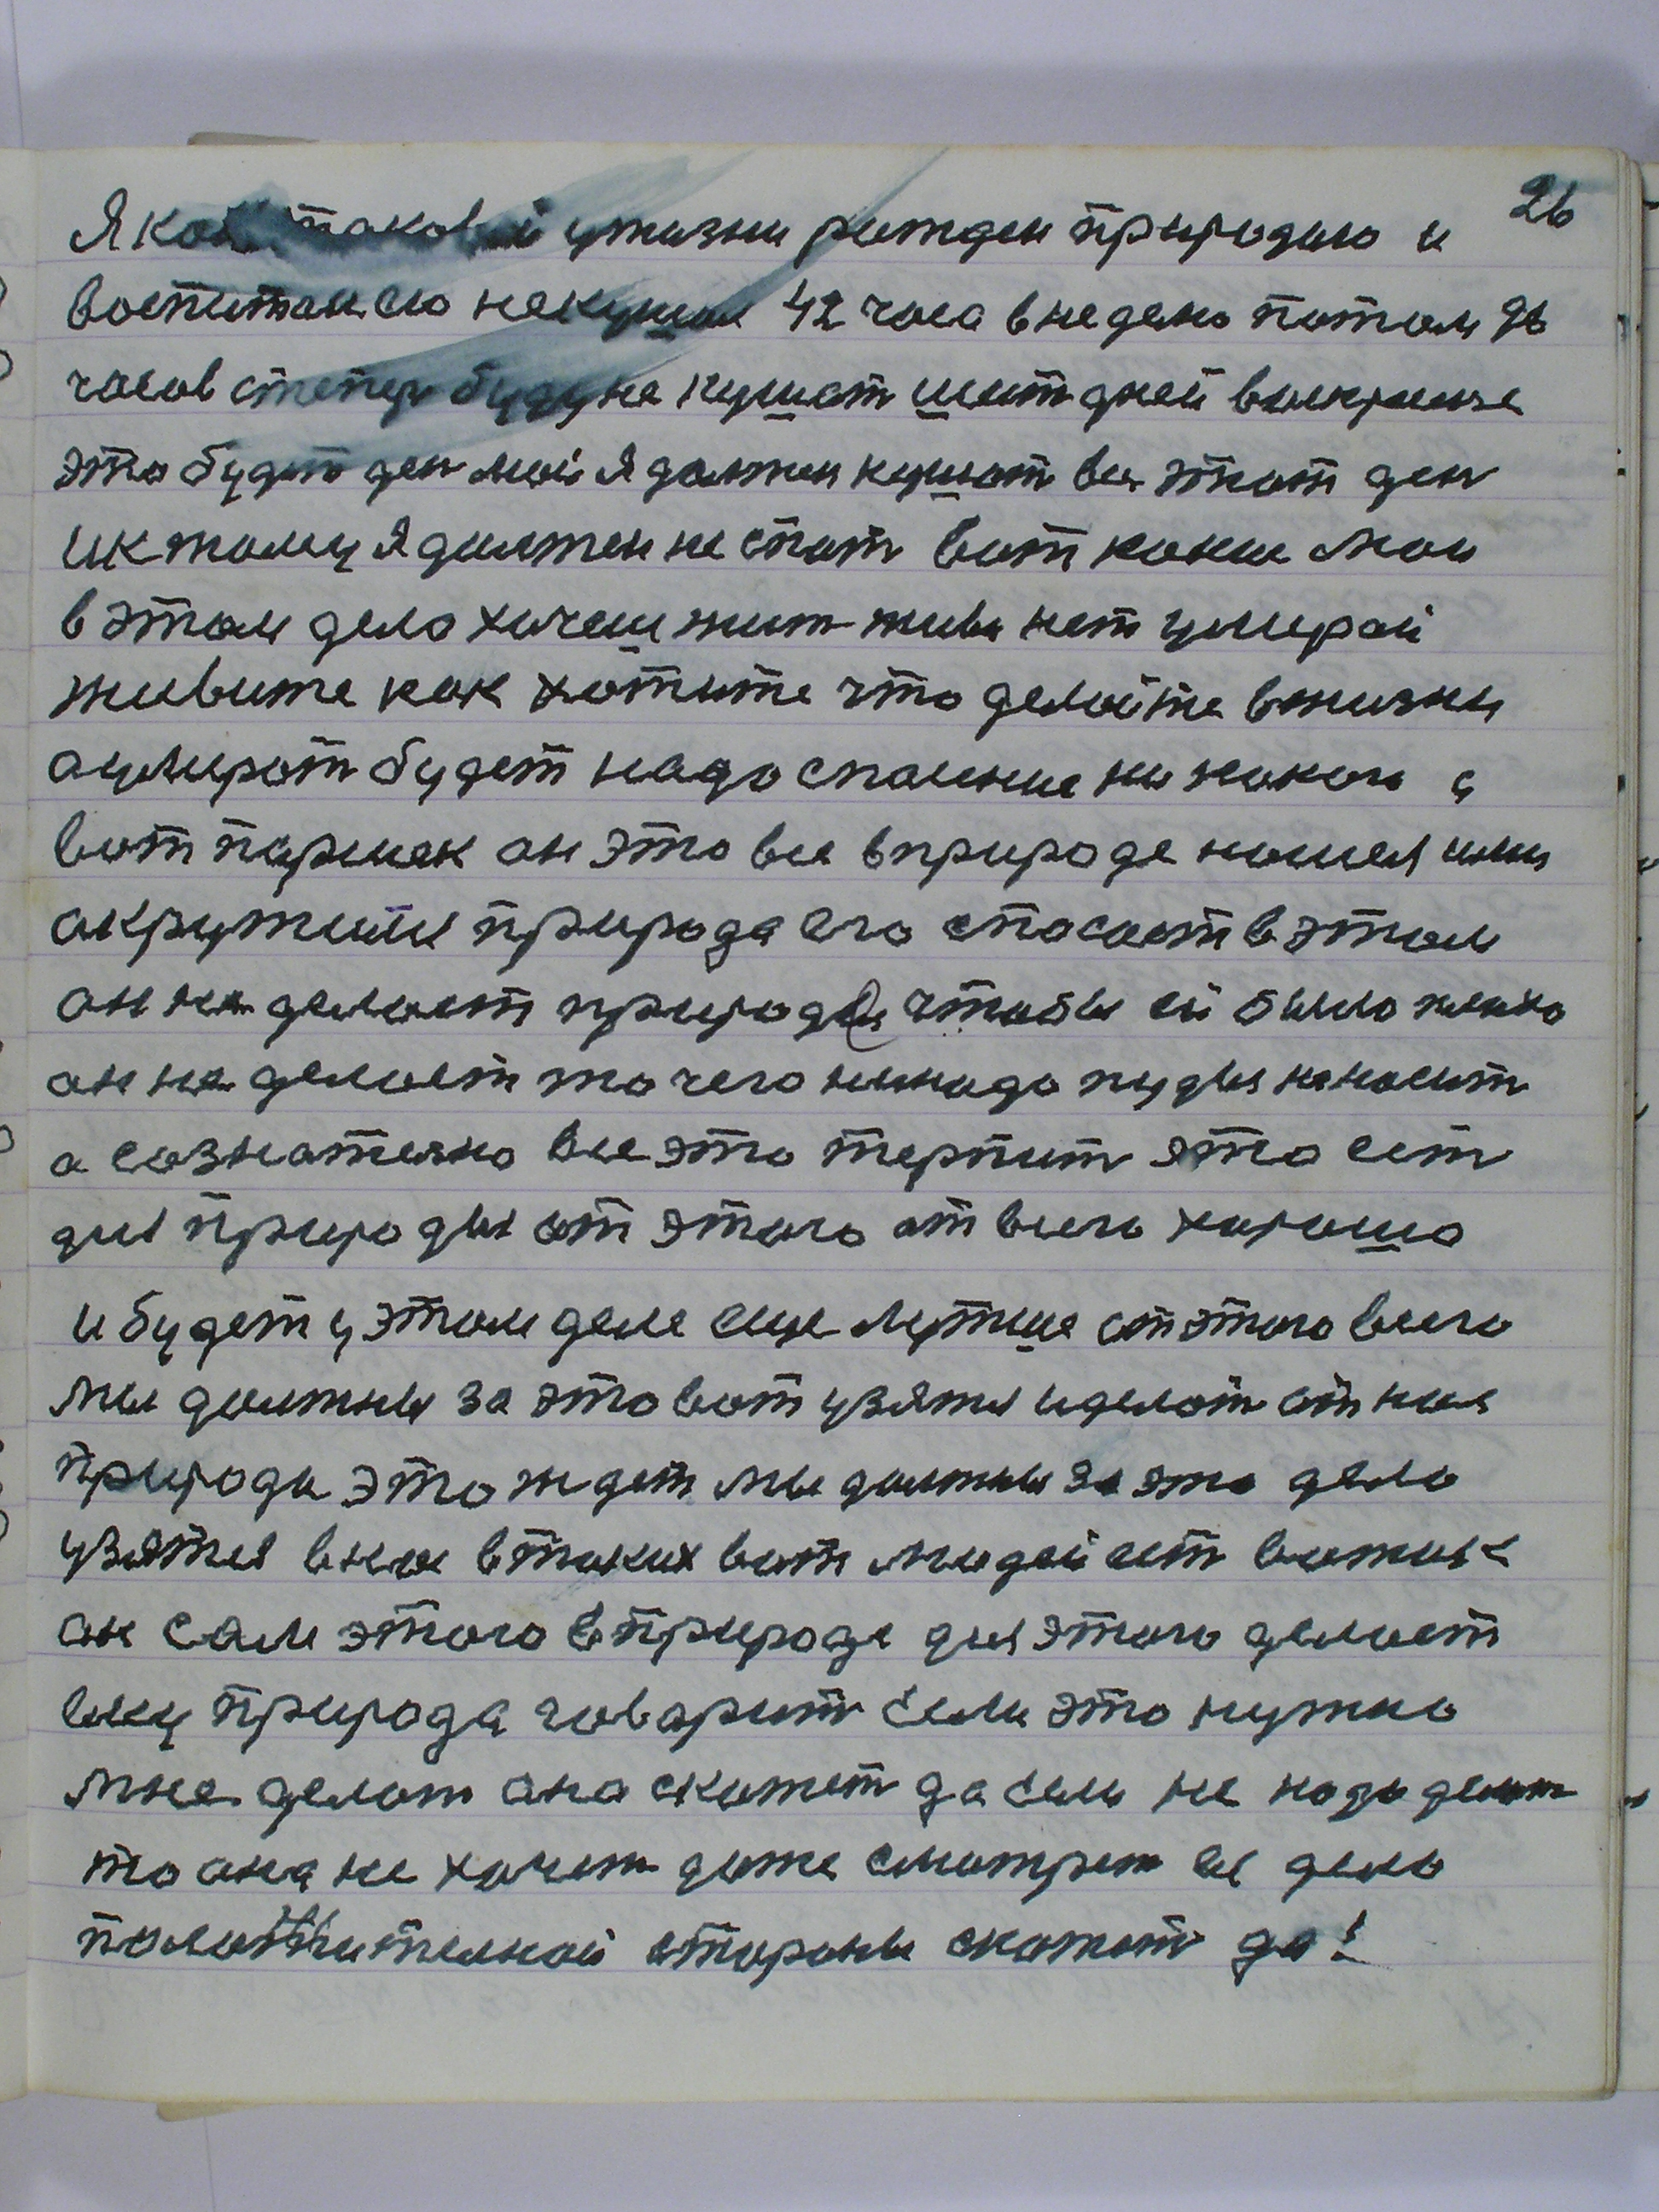 26
Я как таковой ужизни рожден природою и
воспитан ею некушал 42 часа внеделю потом 96
часов степер буду не кушат шест дней воскрисне
это будит ден мой я должен кушат вес этот ден
ик тому я должен не спат вот какие мои
в этом дела хочеш жит живи нет умирай
живите как хотите что делайте вжизни
аумират будет надо спасение ни каког
вот паринек он это все вприроде нашел
акружили природа его спасает в этом
он не делает природе чтобы ей было плохо
он не делает то чего ненадо наносит
а сознателно все это терпит это ест
для природы от этого от всего хорошо
и будет у этом деле еще лутше от этого всего
мы должны за это вот узятся иделат от нас
природа это ждет мы должны за это дело
узятся внас втаких вот людей ест
он сам этого вприроде для этого делает
ему природа говарит если это нужно
мне делат она скажет да если не надо делат
то она не хочет даже смотрет ее дело
положителной стороны скажет да!